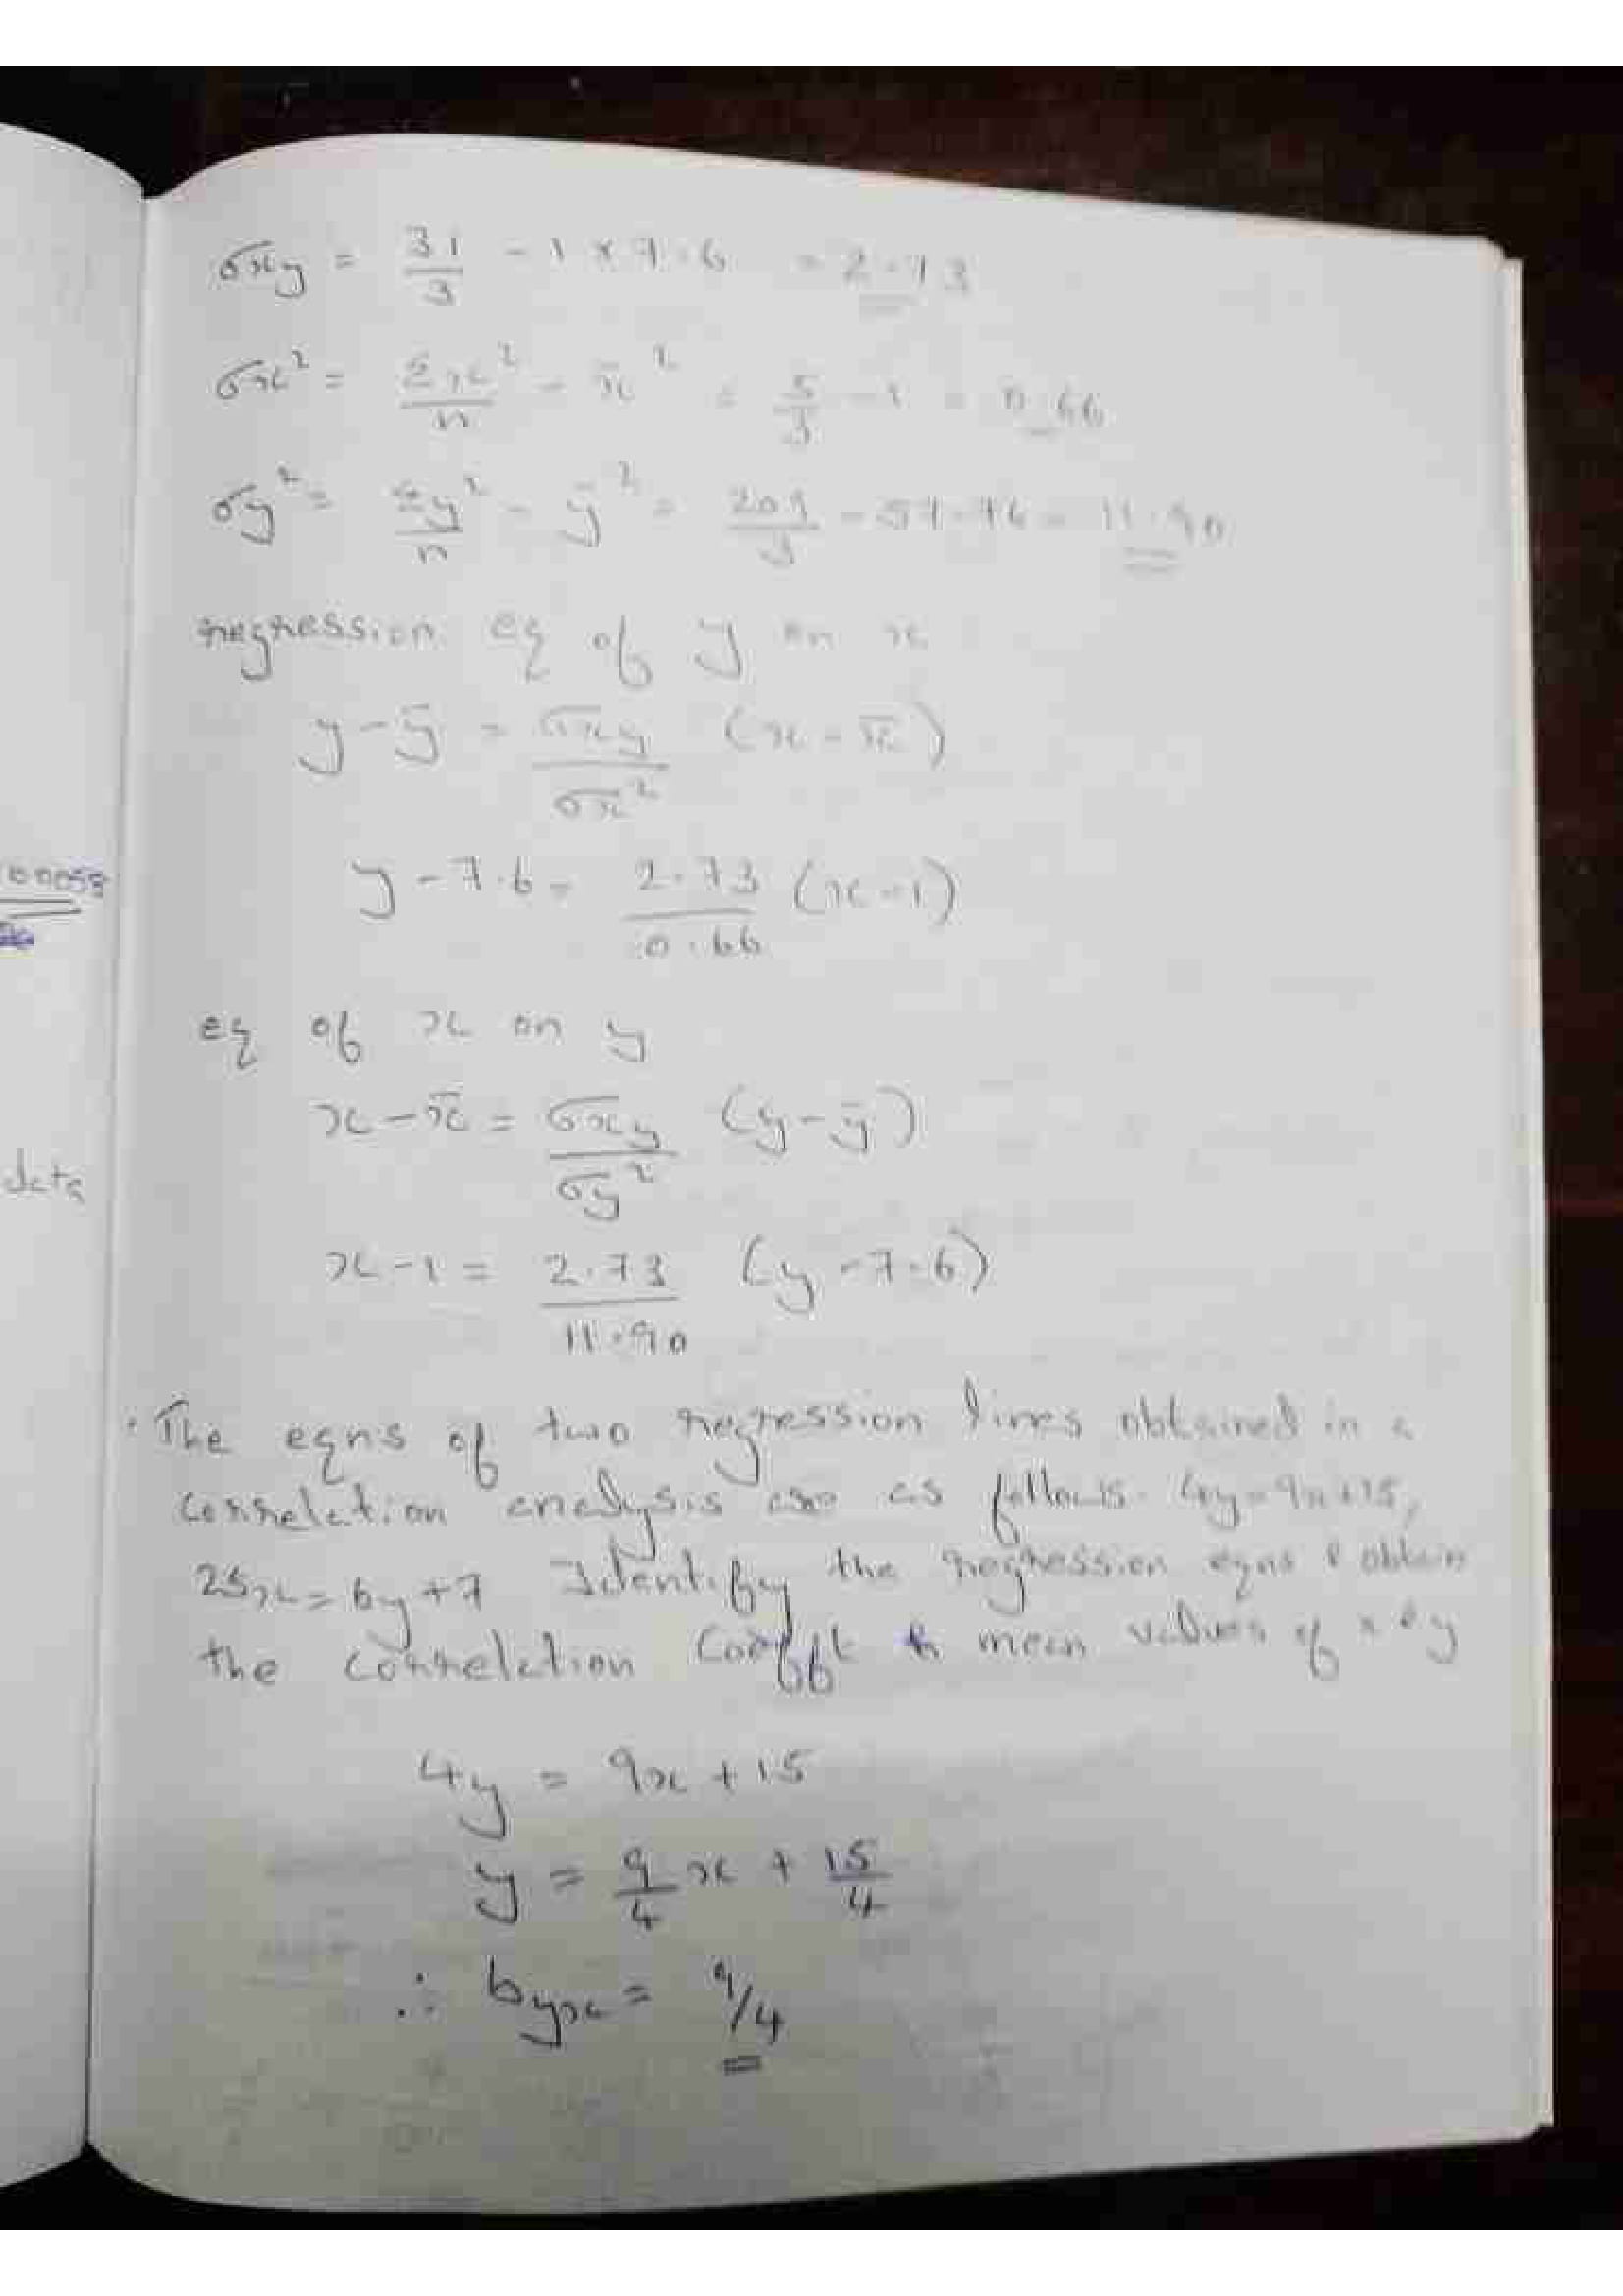 σxy = 31/3 - 1 × 7.6 = 2.73
σx² = Σx²/n - x̄² = 5/3 - 1 = 0.66
σy² = Σy²/n - ȳ² = 209/3 - 57.76 = 11.90
regression eq of y on x
y - ȳ = σxy/σx² (x - x̄)
y - 7.6 = 2.73/0.66 (x - 1)
eq of x on y
x - x̄ = σxy/σy² (y - ȳ)
x - 1 = 2.73/11.90 (y - 7.6)
The eqns of two regression lines obtained in a
correlation analysis are as follows. 4y = 9x + 15,
25x = 6y + 7 Identify the regression eqns & obtain
the correlation coefft & mean values of x & y
4y = 9x + 15
y = 9/4 x + 15/4
∴ byx = 9/4